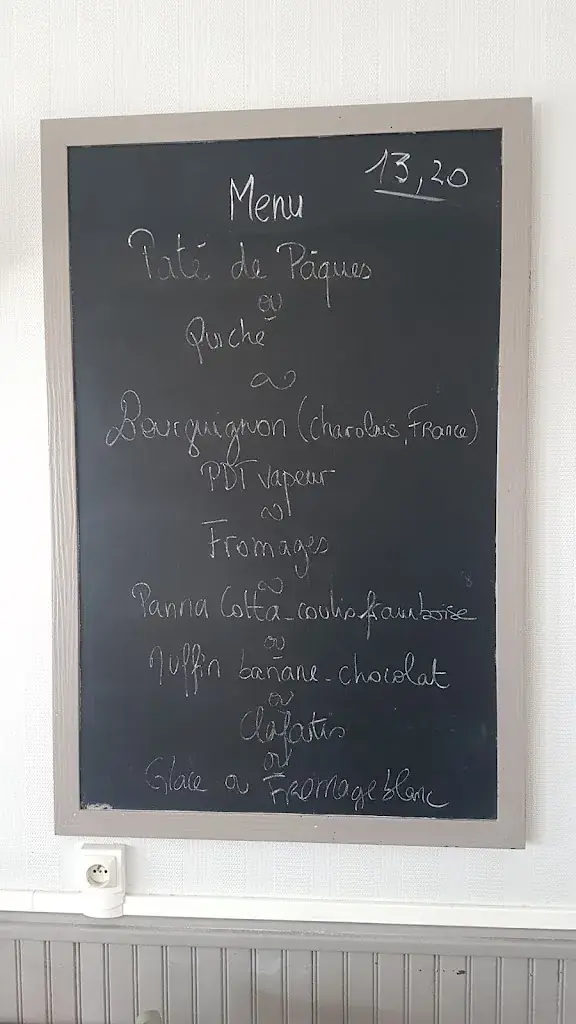 13,20
Menu
Paté de Pâques
ou
Quiche
Bourguignon (charolais, France)
PDT vapeur
Fromages
Panna Cotta - coulis framboise
ou
Muffin banane - chocolat
ou
Clafoutis
ou
Glace ou Fromage blanc